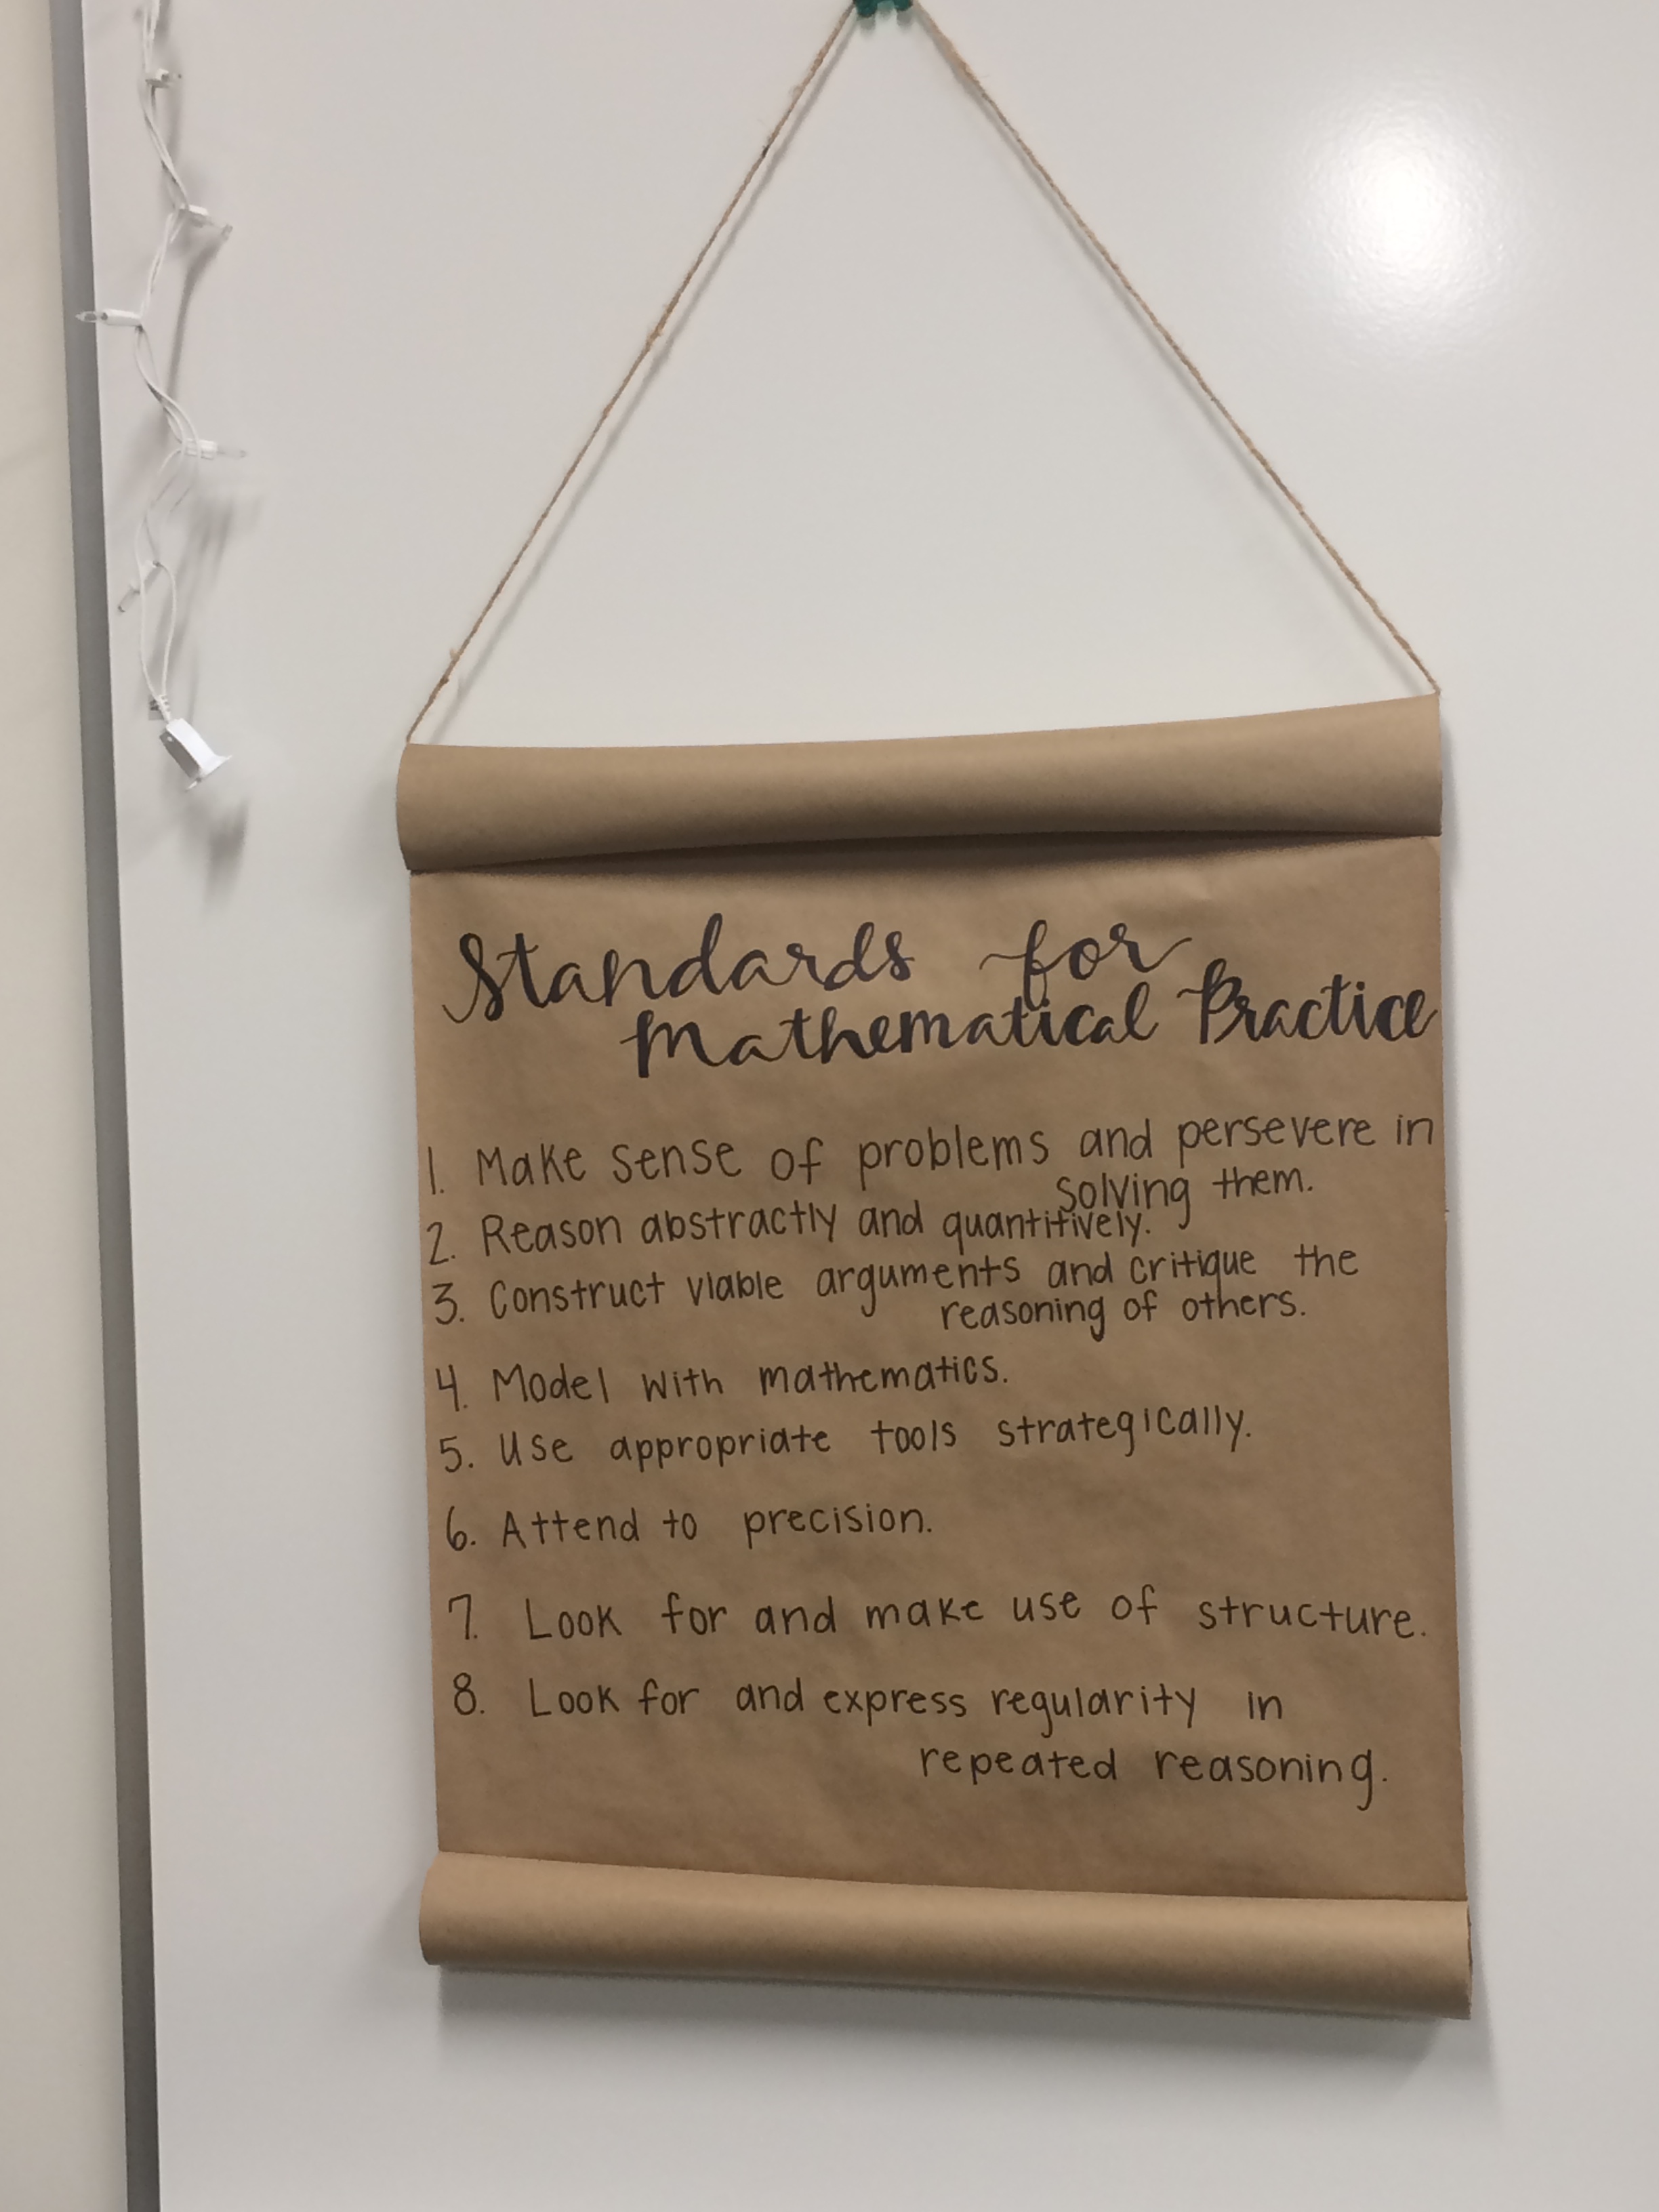 Standards for
Mathematical Practice
1. Make sense of problems and persevere in
solving them.
2. Reason abstractly and quantitively.
3. Construct viable arguments and critique the
reasoning of others.
4. Model with mathematics.
5. Use appropriate tools strategically.
6. Attend to precision.
7. Look for and make use of structure.
8. Look for and express regularity in
repeated reasoning.